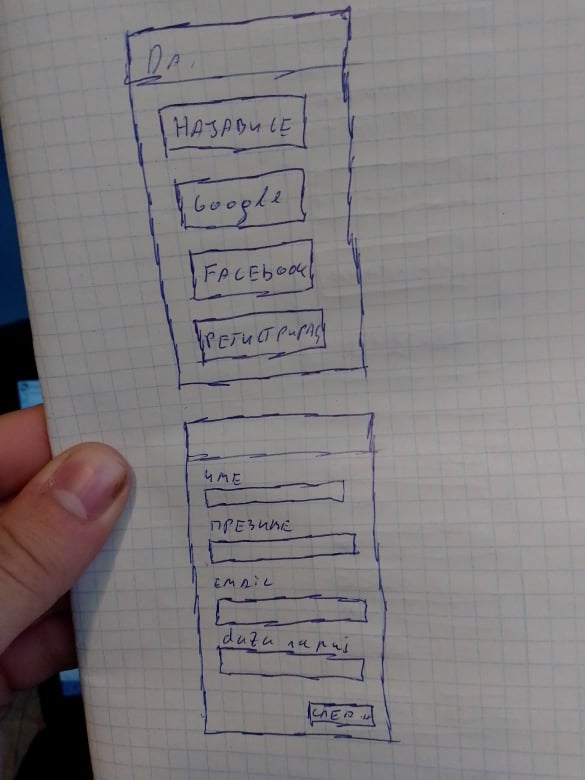 Da.
НАЈАВИ СЕ
Google
FACEBOOK
РЕГИСТРИРАЈ
ИМЕ
ПРЕЗИМЕ
EMAIL